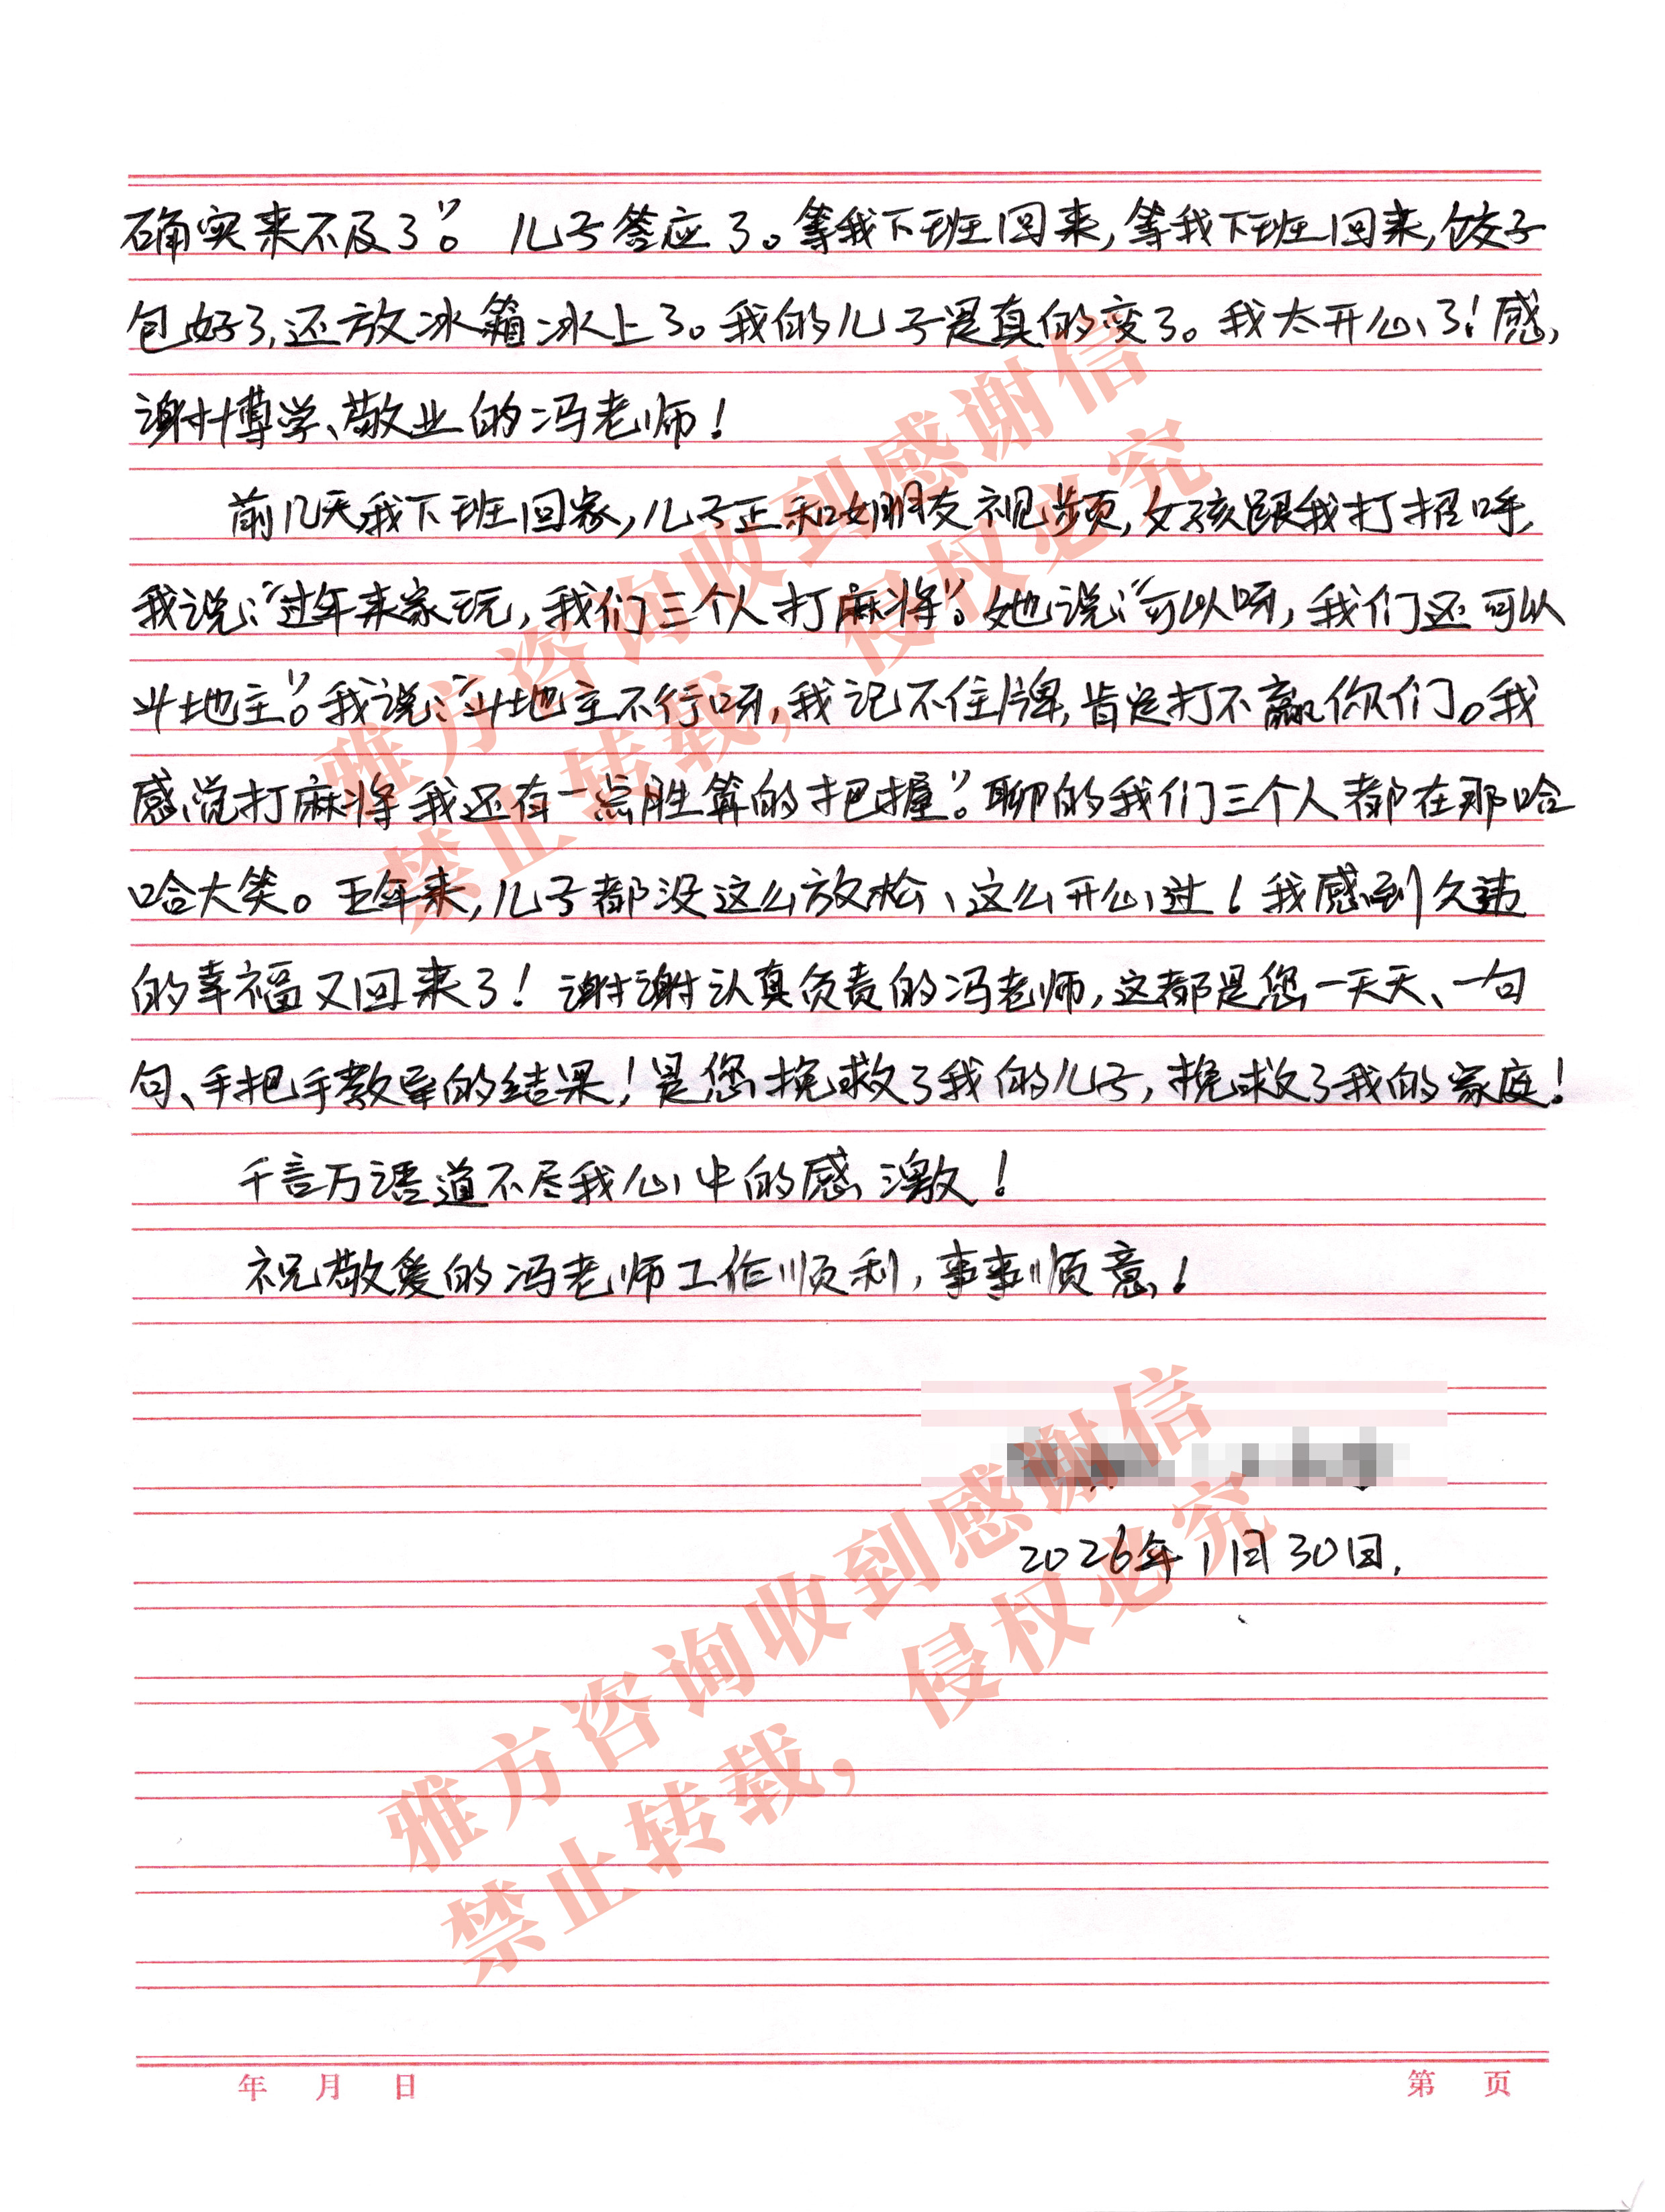 确实来不及了”。儿子答应了。等我下班回来,等我下班回来,饺子
包好了,还放冰箱冰上了。我的儿子是真的变了。我太开心了!感
谢博学、敬业的冯老师!
前几天我下班回家,儿子正和女朋友视频,女孩跟我打招呼,
我说:“过年来家玩,我们三个人打麻将”。她说:“可以呀,我们还可以
斗地主”。我说:“斗地主不行呀,我记不住牌,肯定打不赢你们。我
感觉打麻将我还有一点胜算的把握”。聊的我们三个人都在那哈
哈大笑。五年来,儿子都没这么放松、这么开心过!我感到久违
的幸福又回来了!谢谢认真负责的冯老师,这都是您一天天、一句
句、手把手教导的结果!是您挽救了我的儿子,挽救了我的家庭!
千言万语道不尽我心中的感激!
祝敬爱的冯老师工作顺利,事事顺意!
2026年1月30日.
雅方咨询收到感谢信
禁止转载,侵权必究
雅方咨询收到感谢信
禁止转载,侵权必究
年 月 日
第 页